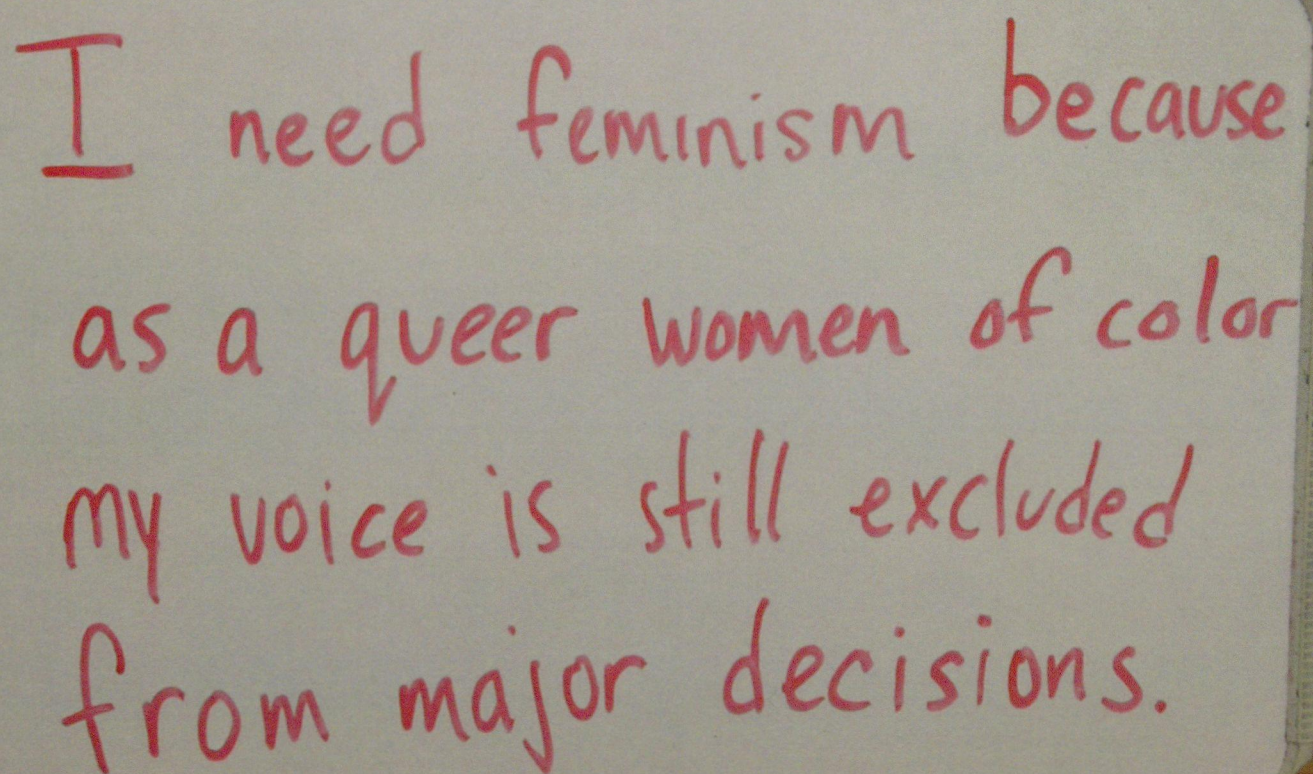 I need feminism because
as a queer women of color
my voice is still excluded
from major decisions.